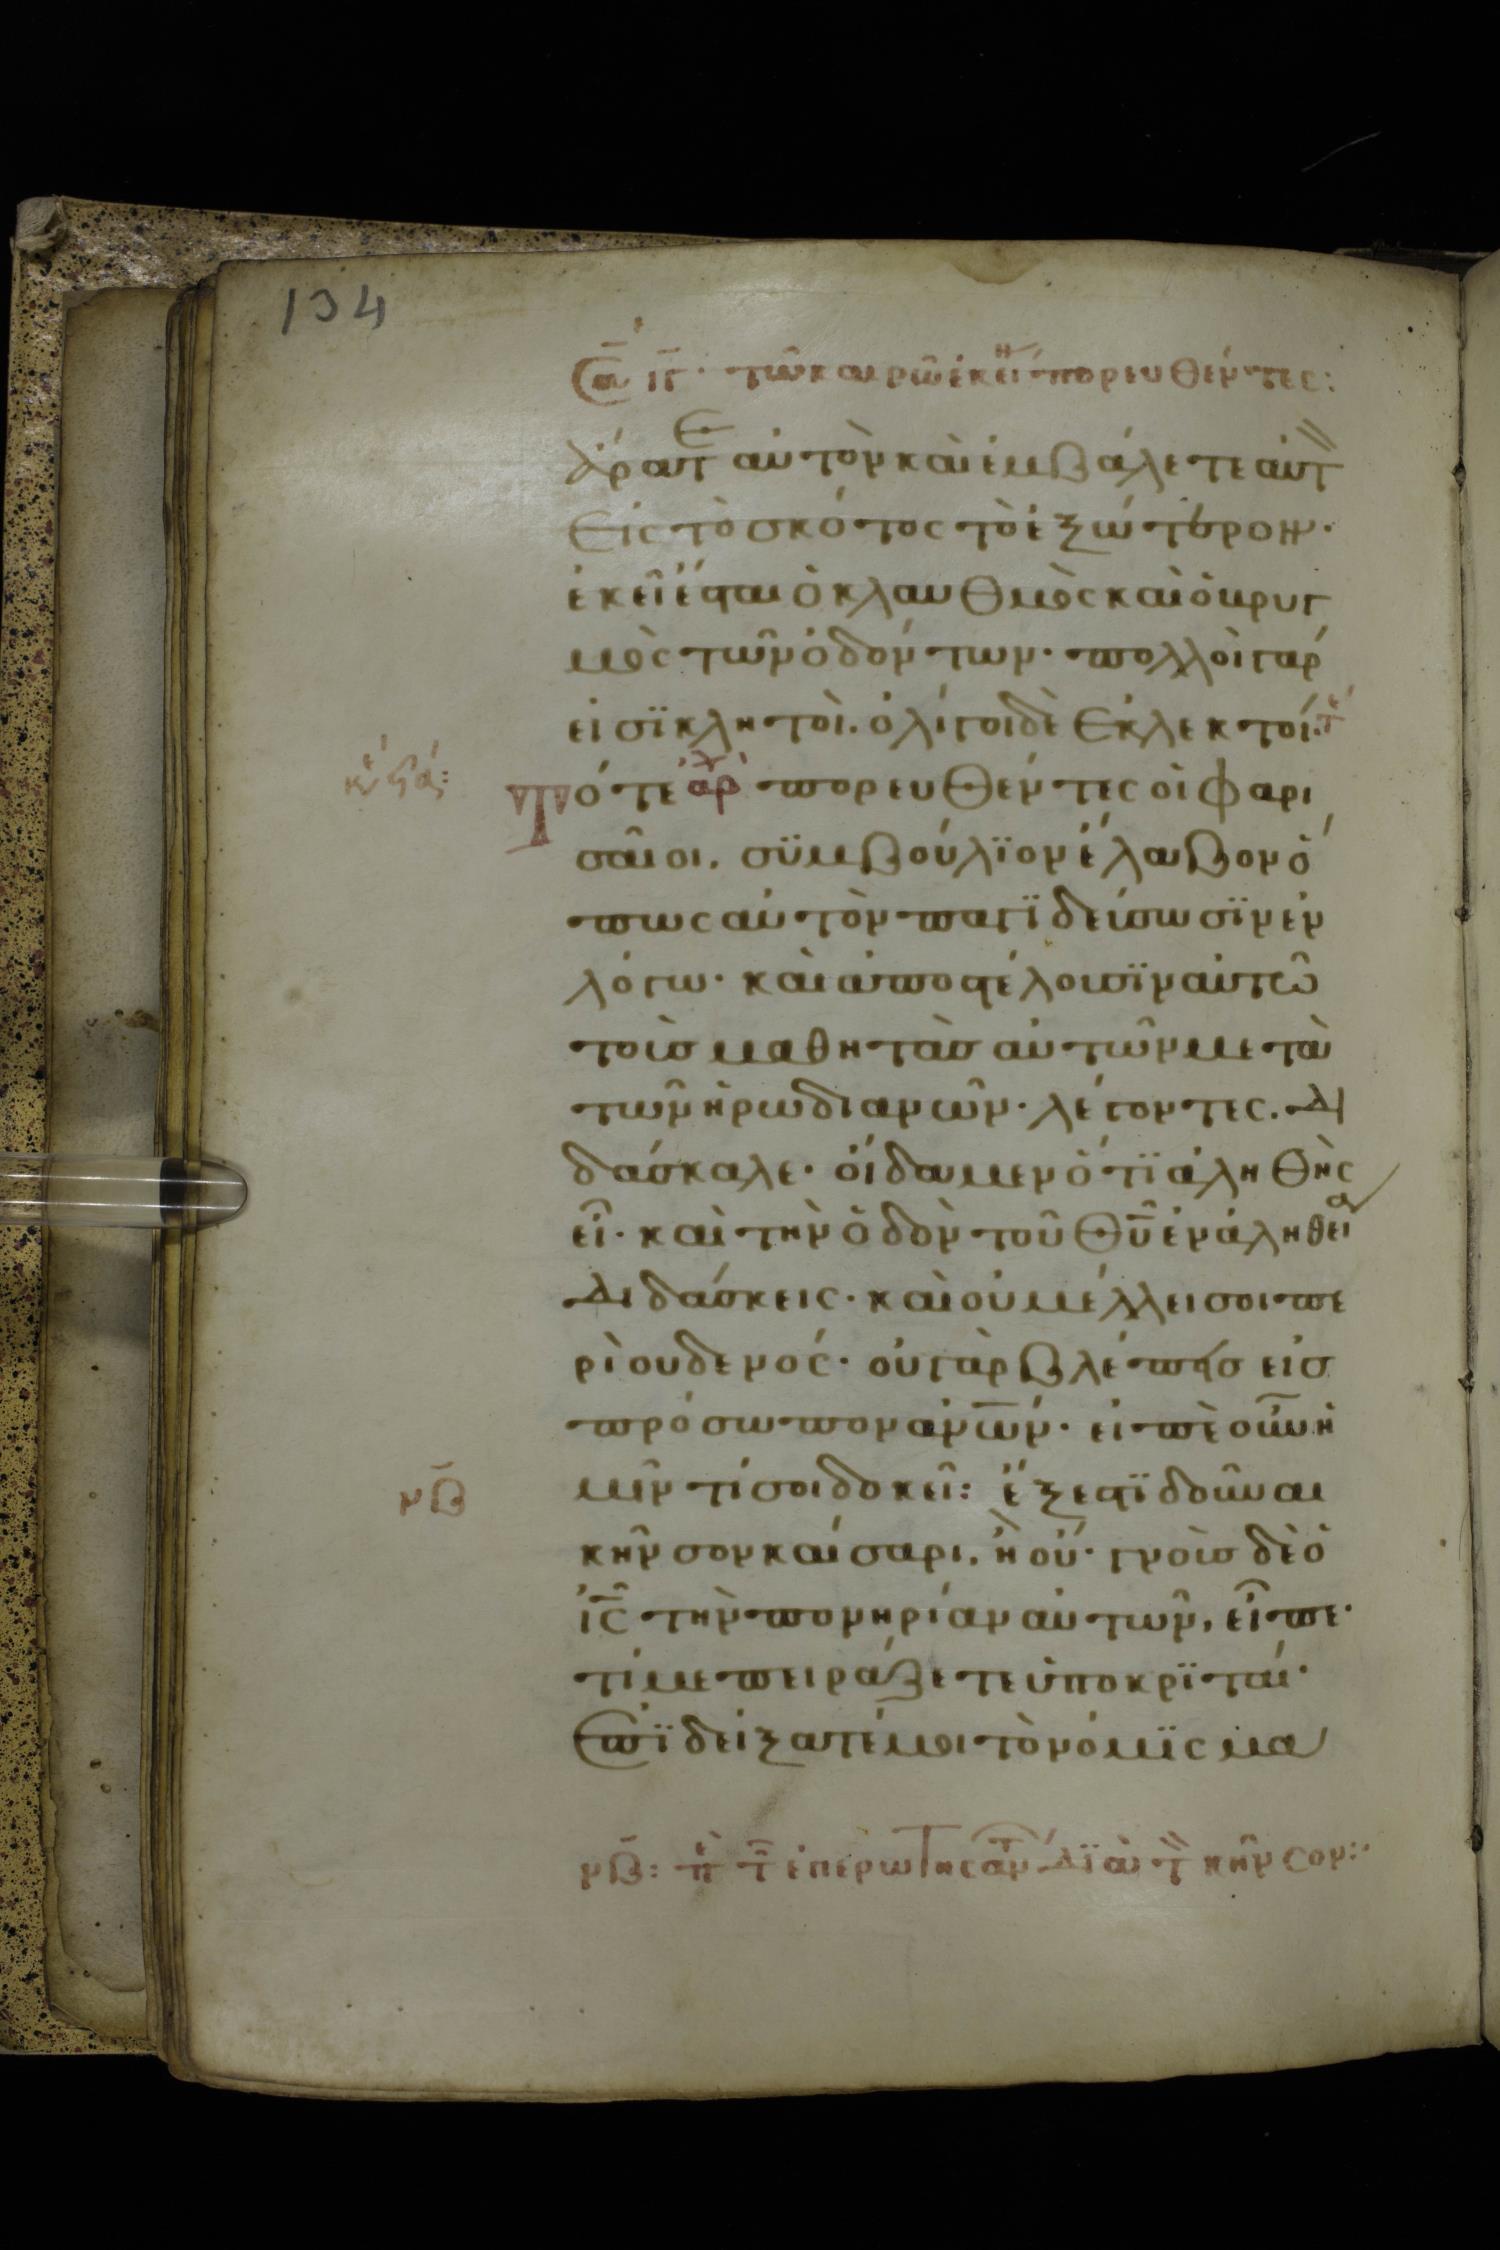 134
τῶ καιρῶ ἐκεί πορευθέντες:
ἄρατε αὐτὸν καὶ ἐμβάλετε αὐτ
εἰς τὸ σκότος τὸ ἐξώτερον·
ἐκεῖ ἔσται ὁ κλαυθμὸς καὶ ὁ βρυγ
μὸς τῶν ὀδόντων· πολλοὶ γάρ
εἰσϊ κλητοὶ. ὀλίγοι δὲ ἐκλεκτοί·
Τότε ἀρ πορευθέντες οἱ φαρι
σαῖοι. σϋμβούλϊον ἔλαβον ὅ
πως αὐτὸν παγϊδεύσωσϊν ἐν
λόγω· καὶ ἀποστέλουσϊν αὐτῶ
τοὺσ μαθητὰσ αὐτῶν μετὰ
τῶν ἡρωδιανῶν· λέγοντες. Δι
δάσκαλε· οἴδαμεν ὅτϊ ἀληθὴς
εἶ· καὶ τὴν ὁδὸν τοῦ θῦ ἐν ἀληθεία
διδάσκεις· καὶ οὐ μέλλει σοι πε
ρὶ ουδενός· οὐ γὰρ βλέπησ εἰσ
πρόσωπον ἀνων· εἰπὲ οὖν ἡ
νβ μῖν τί σοι δοκεῖ: ἔξεστϊ δοῦναι
κῆνσον καίσαρι. ἢ οὔ· γνοὺσ δὲ ὁ
ἰς τὴν πονηρίαν αὐτῶν, εἶπε·
τί με πειράζετε ὑποκρϊταί·
Ἐπϊδείξατέ μοι τὸ νόμϊςμα
νβ: ἐπερωτησάν δϊὰ κῆνσον: